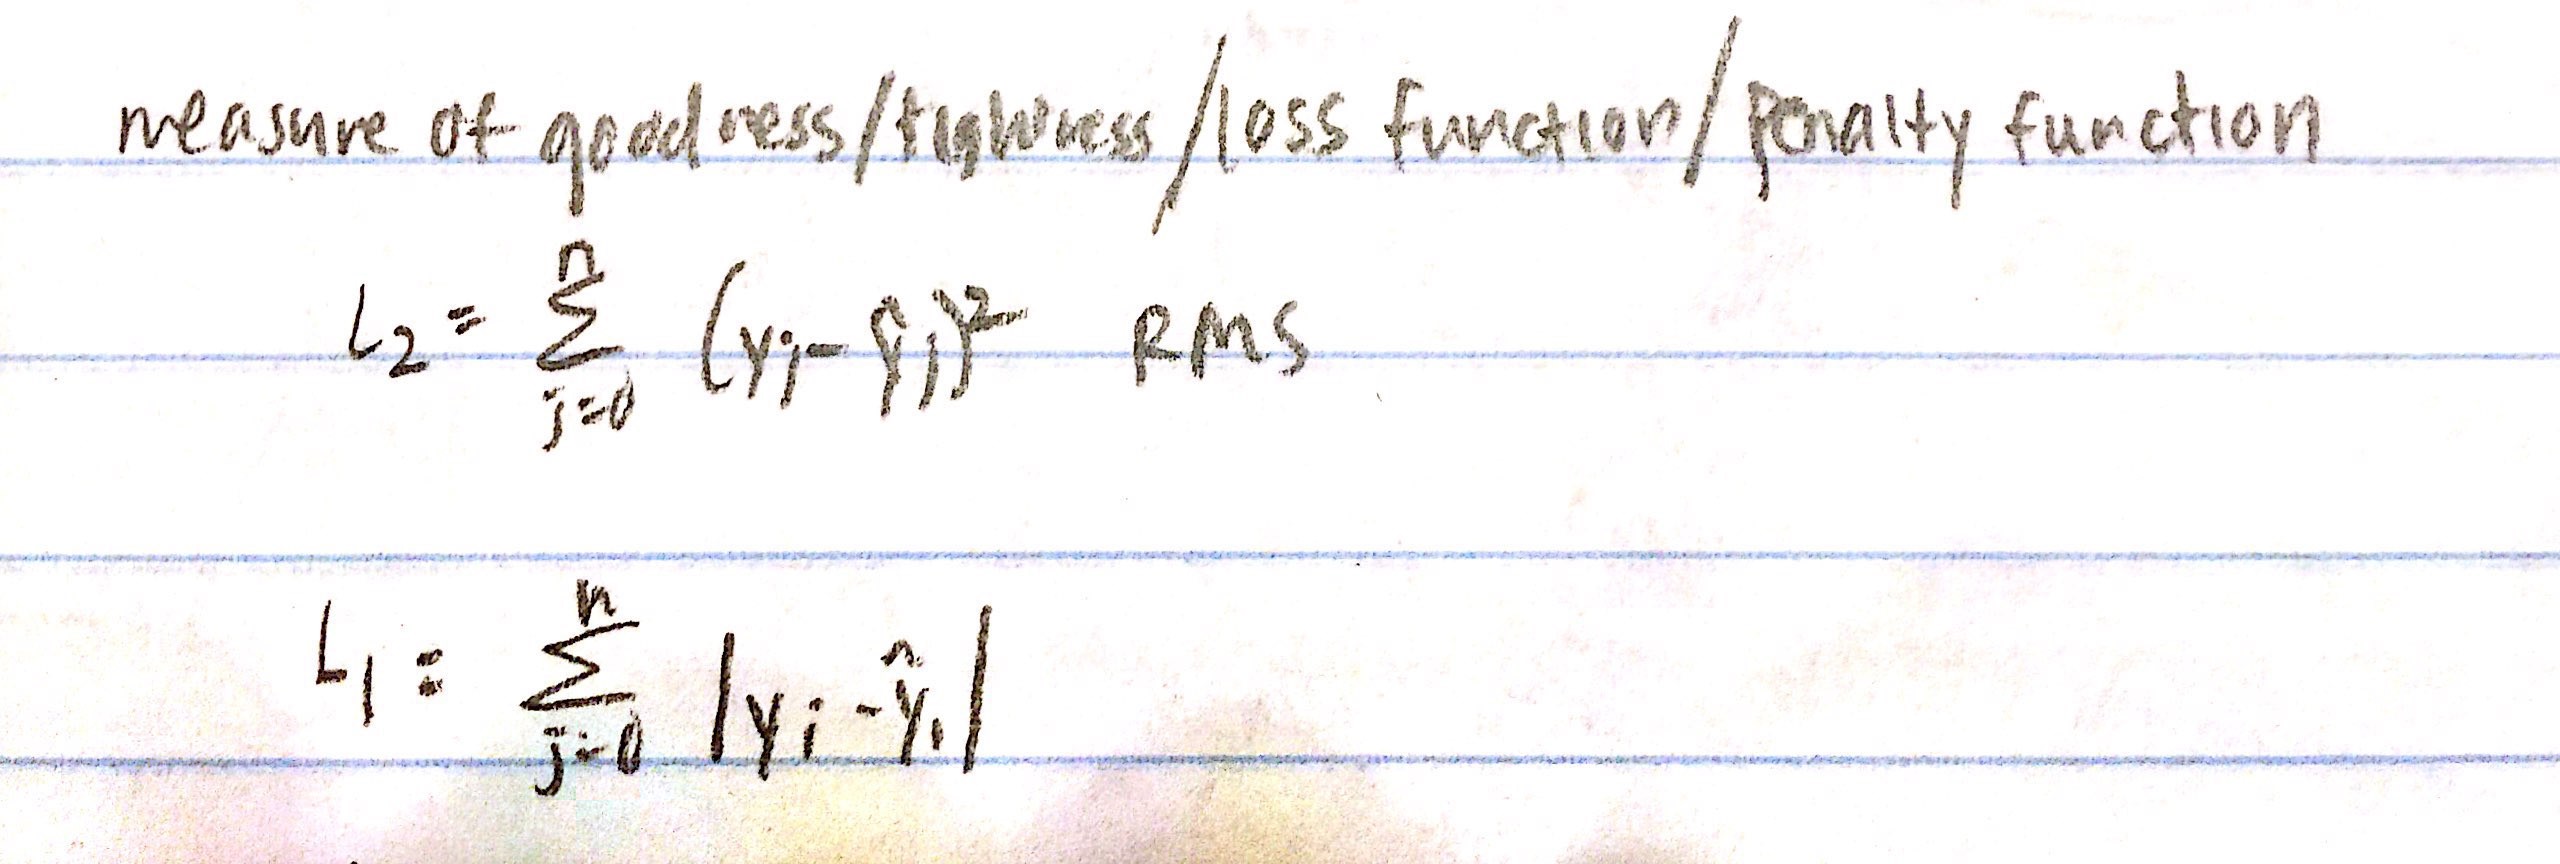 measure of goodness/tightness/loss function/penalty function
L₂ = Σ_{j=0}^{n} (yⱼ - ŷⱼ)² RMS
L₁ = Σ_{j=0}^{n} |yᵢ - ŷᵢ|